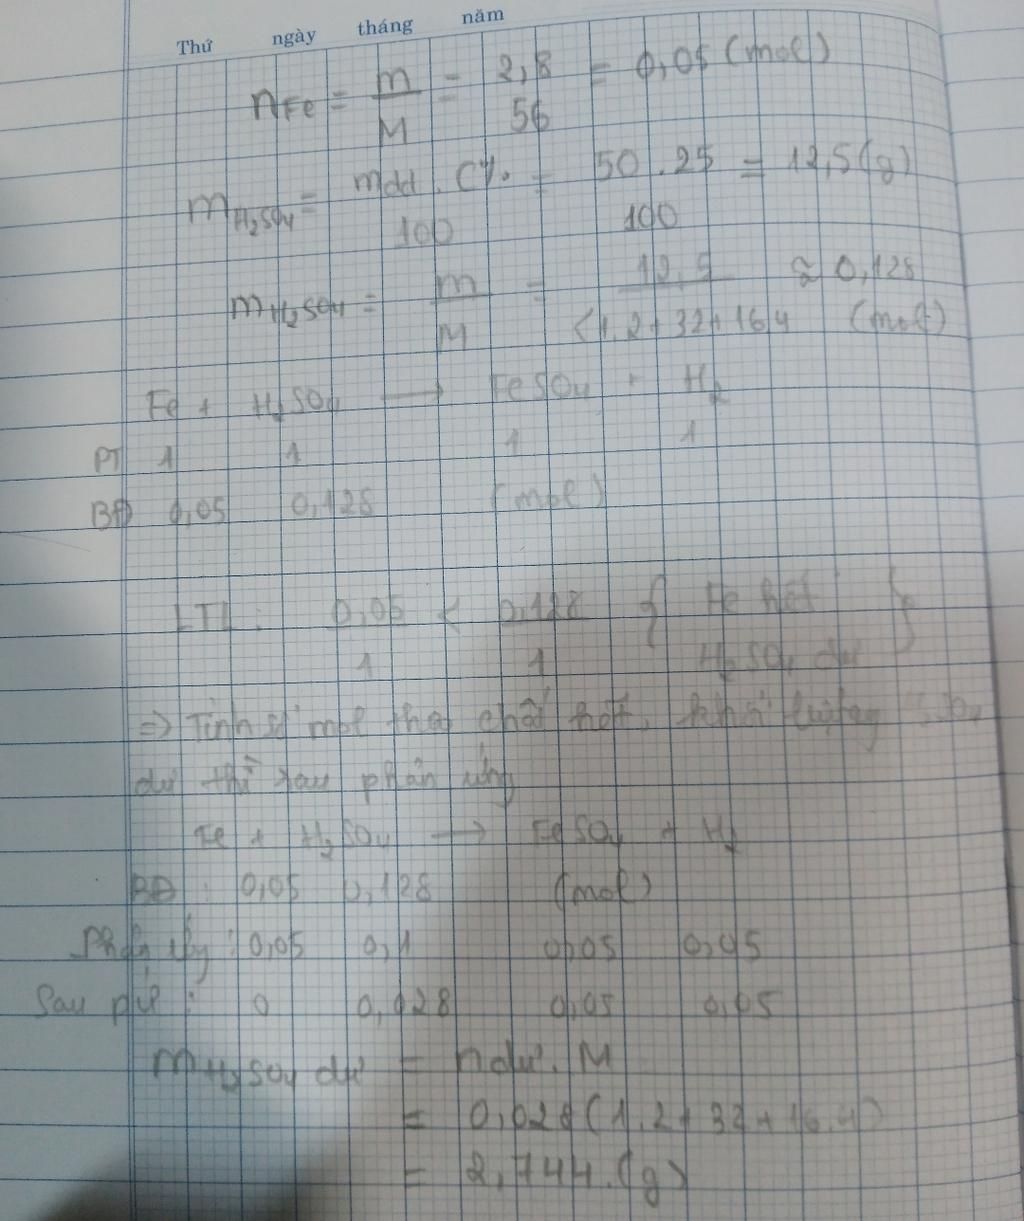 Thứ ngày tháng năm
nFe = m/M = 2,8/56 = 0,05 (mol)
mH₂SO₄ = mdd . C%/100 = 50.25/100 = 12,5 (g)
mH₂SO₄ = m/M = 12,5/(1.2+32+16.4 ≈ 0,128 (mol)
Fe + H₂SO₄ → FeSO₄ + H₂
PT 1 1 1 1
BĐ 0,05 0,128 (mol)
LTL : 0,05/1 < 0,128/1 { Fe hết H₂SO₄ dư }
=> Tính số mol theo chất hết, khối lượng
dư thì sau phản ứng
Fe + H₂SO₄ → FeSO₄ + H₂
BĐ : 0,05 0,128 (mol)
Phản ứng : 0,05 0,1 0,05 0,05
Sau pứ : 0 0,028 0,05 0,05
mH₂SO₄ dư = ndư . M
= 0,028 (1.2+32+16.4)
= 2,744 (g)